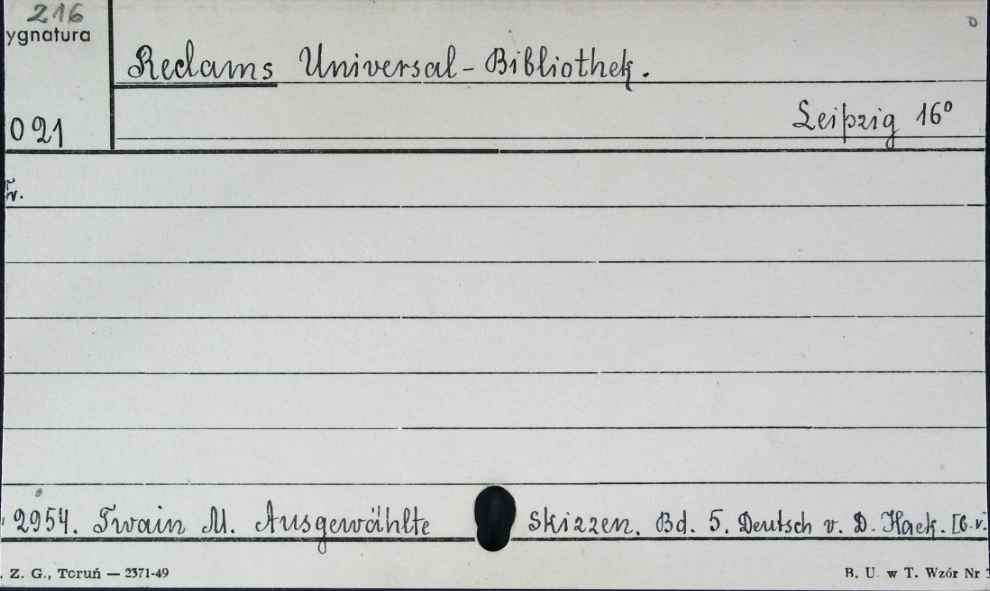 216
ygnatura
Reclams Universal-Bibliothek.
021
Leipzig 16°
2954. Twain M. Ausgewählte Skizzen. Bd. 5. Deutsch v. D. Haek. [B.v.
. Z. G., Toruń — 2371-49
B. U. w T. Wzór Nr